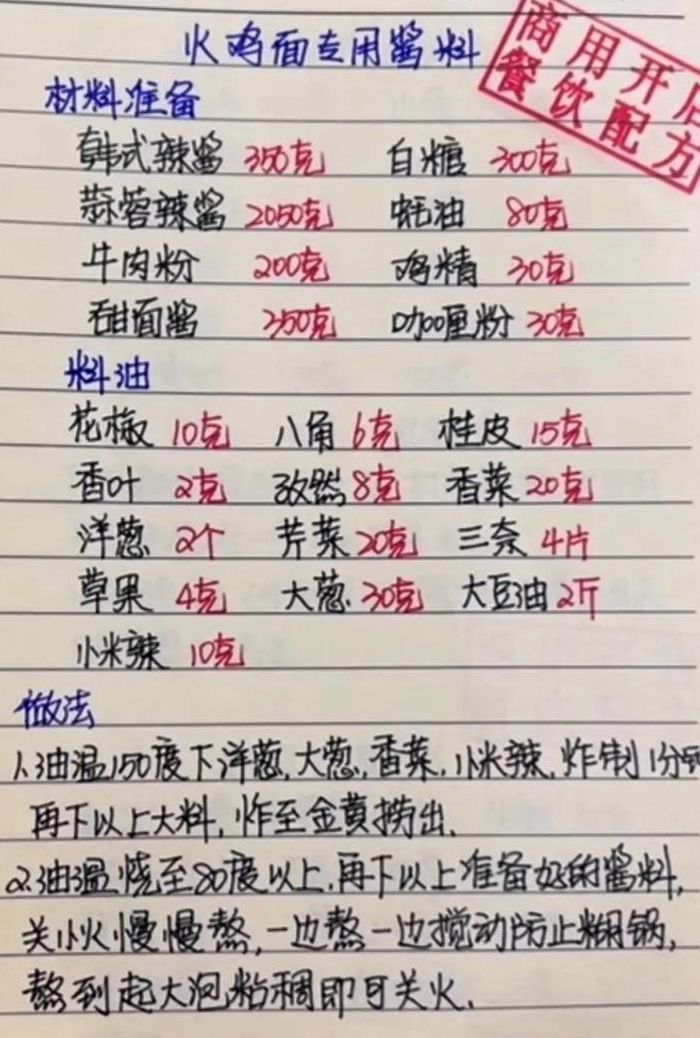 火鸡面专用酱料
商用开店
餐饮配方
材料准备
韩式辣酱 350克 白糖 300克
蒜蓉辣酱 2050克 蚝油 80克
牛肉粉 200克 鸡精 30克
甜面酱 350克 咖喱粉 30克
料油
花椒 10克 八角 6克 桂皮 15克
香叶 2克 孜然 8克 香菜 20克
洋葱 2个 芹菜 20克 三奈 4片
草果 4克 大葱 30克 大豆油 2斤
小米辣 10克
做法
1.油温150度下洋葱,大葱,香菜,小米辣,炸制1分钟
再下以上大料,炸至金黄捞出.
2.油温烧至80度以上,再下以上准备好的酱料,
关小火慢慢熬,一边熬一边搅动防止糊锅,
熬到起大泡粘稠即可关火.